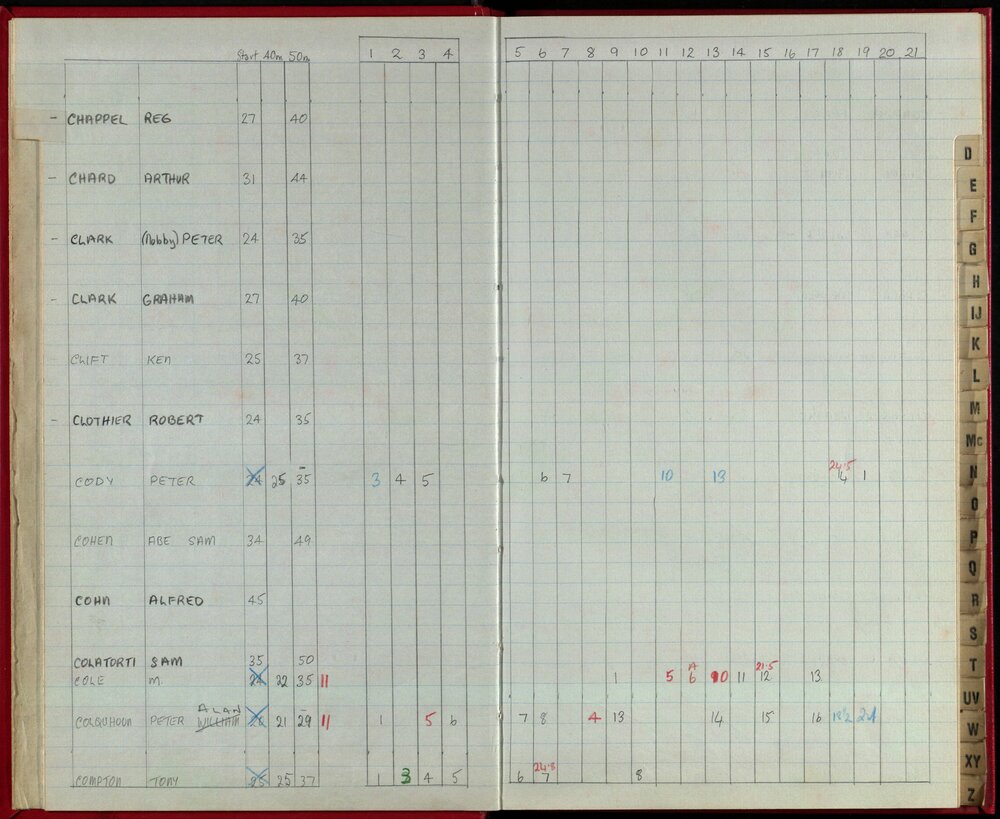 Start 40m 50m 1 2 3 4 5 6 7 8 9 10 11 12 13 14 15 16 17 18 19 20 21
- CHAPPEL REG 27 40
- CHARD ARTHUR 31 44
- CLARK (Nobby) PETER 24 35
- CLARK GRAHAM 27 40
CLIFT KEN 25 37
- CLOTHIER ROBERT 24 35
24.5
CODY PETER 24 25 35 3 4 5 6 7 10 13 14 1
COHEN ABE SAM 34 49
COHN ALFRED 45
COLATORTI SAM 35 50
A 21.5
COLE M. 24 22 35 11 1 5 6 10 11 12 13
ALAN
COLQUHOUN PETER WILLIAM 21 29 11 1 5 6 7 8 4 13 14 15 16 18½ 21
24.8
COMPTON TONY 25 25 37 1 3 4 5 6 7 8
D
E
F
G
H
IJ
K
L
M
Mc
N
O
P
Q
R
S
T
UV
W
XY
Z